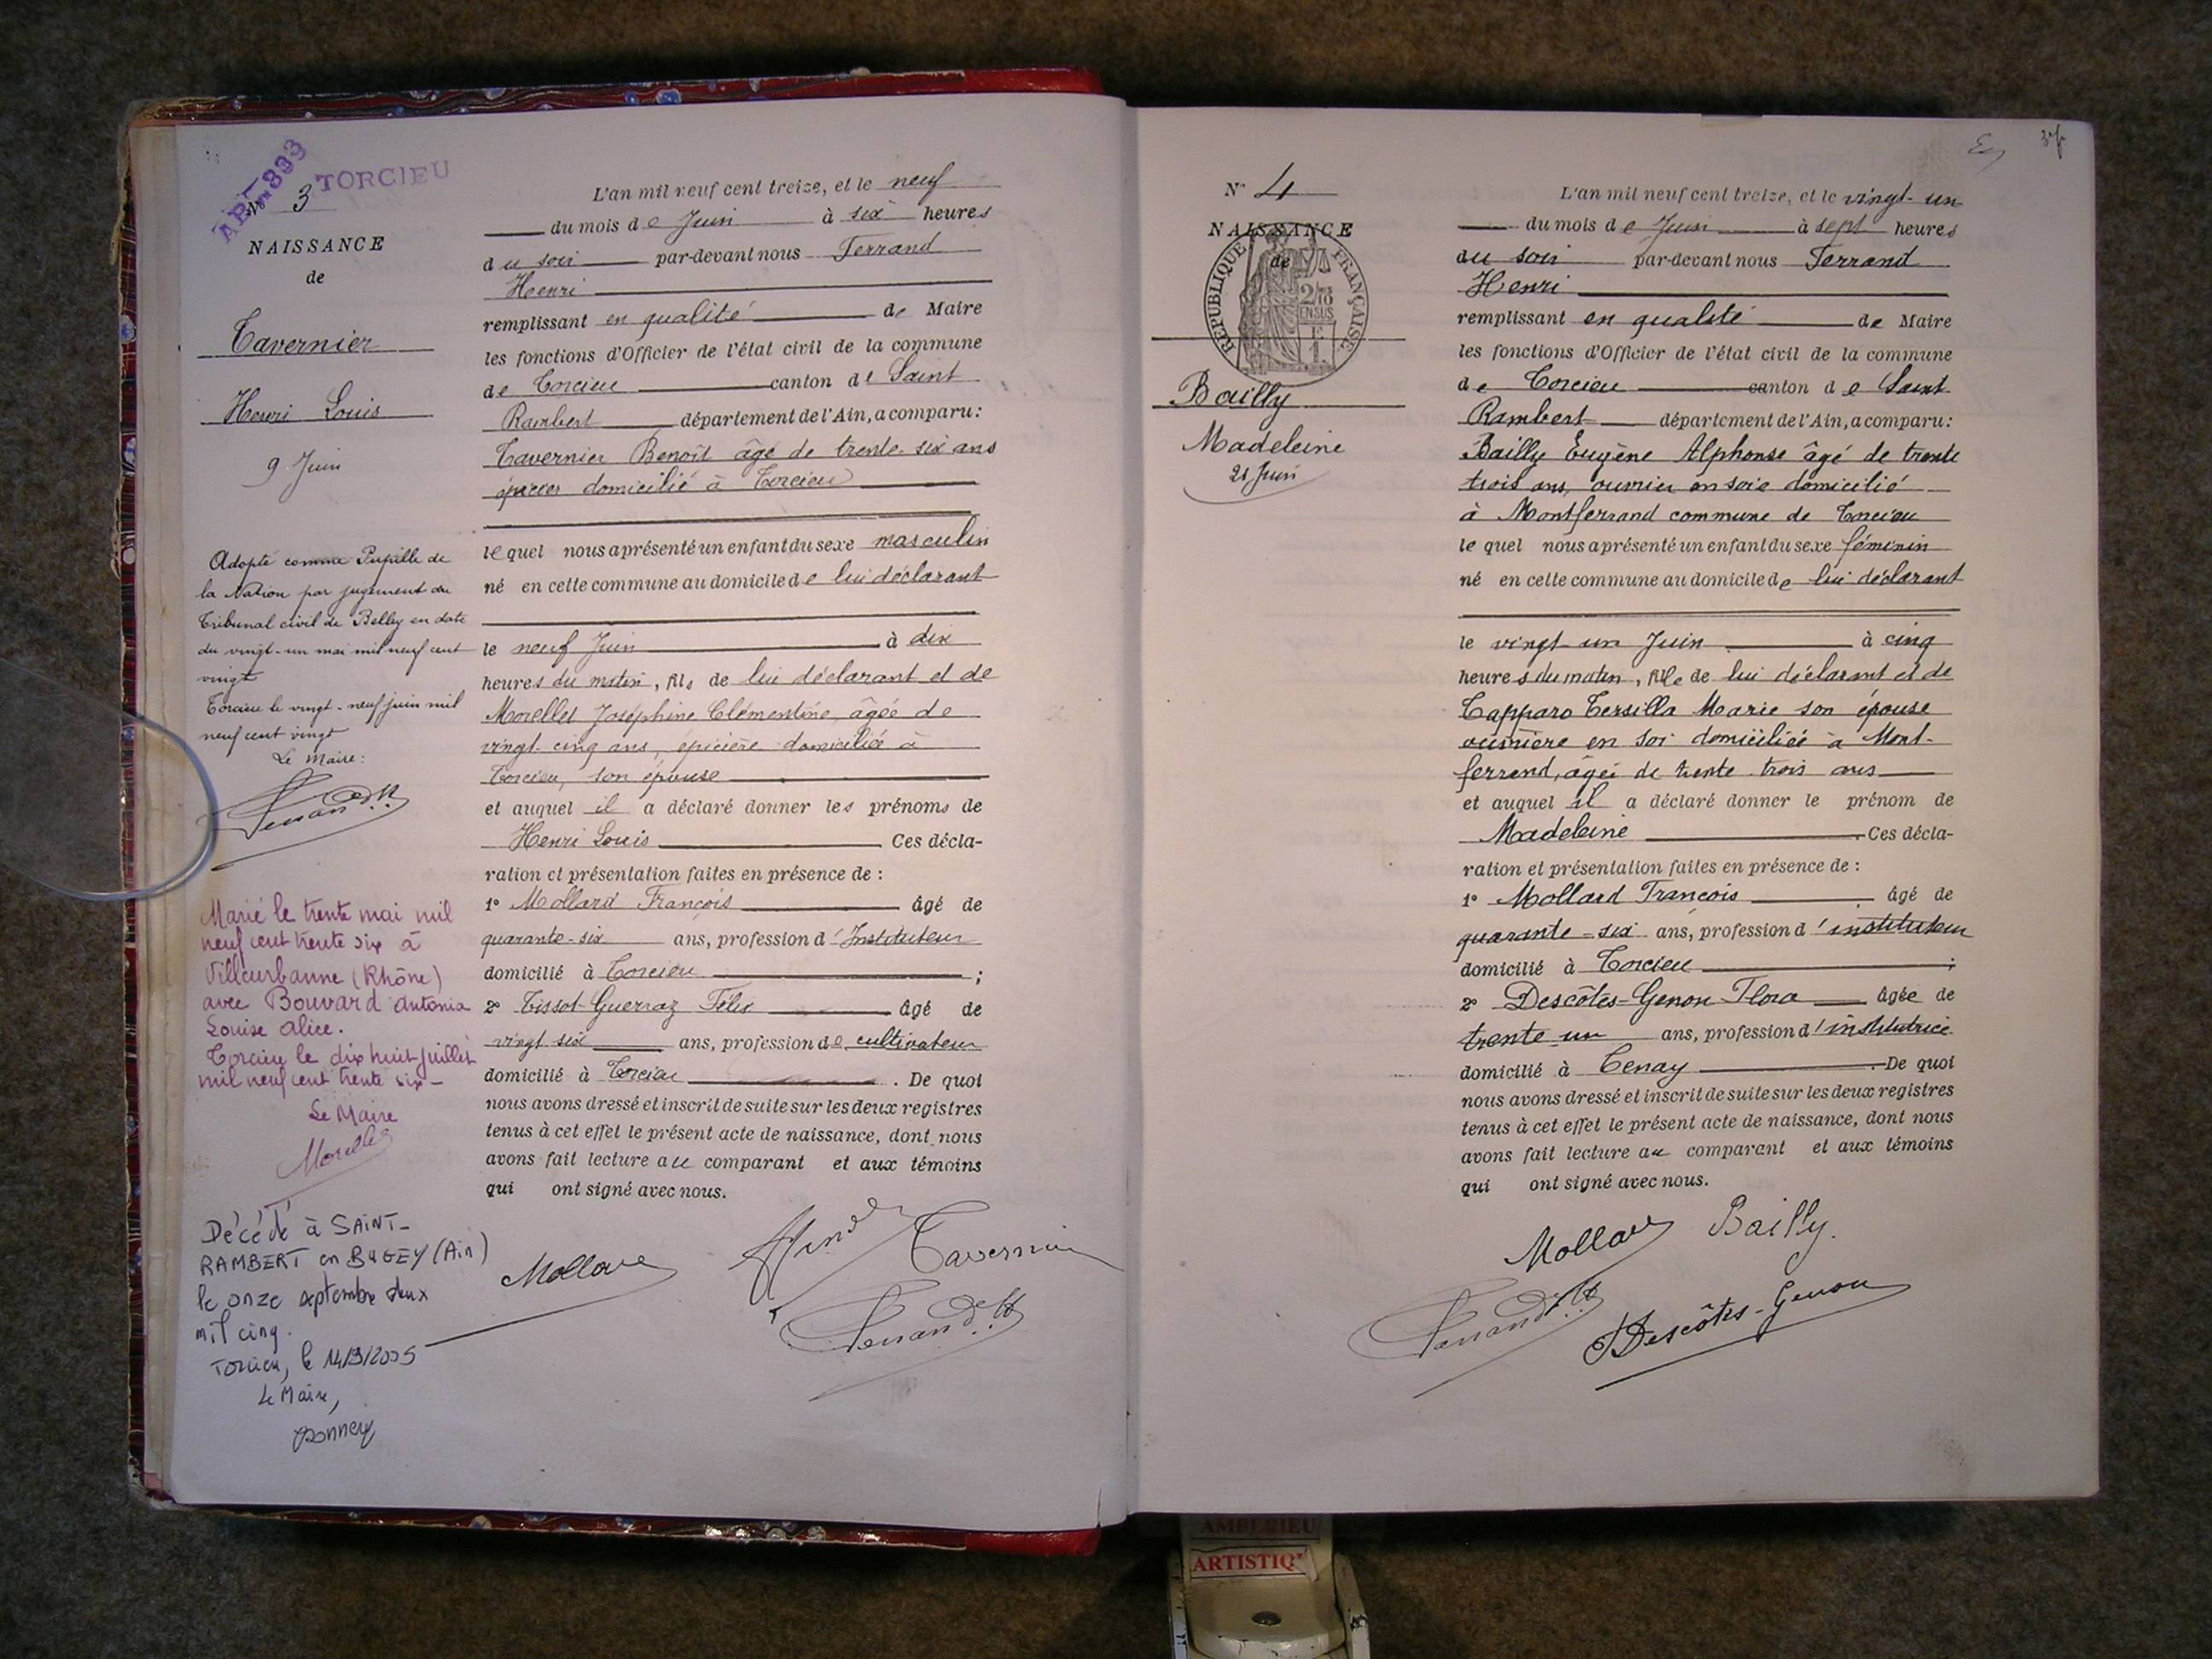 TORCIEU
3
NAISSANCE
de
Tavernier
Henri Louis
9 Juin
Adopté comme Pupille de
la Nation par jugement du
Tribunal civil de Belley en date
du vingt-un mai mil neuf cent
vingt
Torcieu le vingt-neuf juin mil
neuf cent vingt
Le Maire:
Marié le trente mai mil
neuf cent trente six à
Villeurbanne (Rhône)
avec Bouvard Antonia
Louise Alice.
Torcieu le dix huit juillet
mil neuf cent trente six -
Le Maire
Décédé à SAINT-
RAMBERT en BUGEY (Ain)
le onze septembre deux
mil cinq.
Torcieu, le 14/9/2005
Le Maire,
L'an mil neuf cent treize, et le neuf
du mois de Juin à six heures
du soir par-devant nous Ferrand
Henri
remplissant en qualité de Maire
les fonctions d'Officier de l'état civil de la commune
de Torcieu canton de Saint
Rambert département de l'Ain, a comparu:
Tavernier Benoît âgé de trente-six ans
épicier domicilié à Torcieu
lequel nous a présenté un enfant du sexe masculin
né en cette commune au domicile de lui déclarant
le neuf Juin à dix
heures du matin, fils de lui déclarant et de
Morellet Joséphine Clémentine, âgée de
vingt-cinq ans, épicière domiciliée à
Torcieu, son épouse
et auquel il a déclaré donner les prénoms de
Henri Louis Ces décla-
ration et présentation faites en présence de :
1° Mollard François âgé de
quarante-six ans, profession d'Instituteur
domicilié à Torcieu ;
2° Tissot-Guerraz Félix âgé de
vingt six ans, profession de cultivateur
domicilié à Torcieu . De quoi
nous avons dressé et inscrit de suite sur les deux registres
tenus à cet effet le présent acte de naissance, dont nous
avons fait lecture au comparant et aux témoins
qui ont signé avec nous.
Mollard Tavernier
N° 4
NAISSANCE
de
REPUBLIQUE FRANÇAISE
Bailly
Madeleine
21 Juin
L'an mil neuf cent treize, et le vingt-un
du mois de Juin à sept heures
du soir par-devant nous Ferrand
Henri
remplissant en qualité de Maire
les fonctions d'Officier de l'état civil de la commune
de Torcieu canton de Saint
Rambert département de l'Ain, a comparu:
Bailly Eugène Alphonse âgé de trente
trois ans, ouvrier en soie domicilié
à Montferrand commune de Torcieu
lequel nous a présenté un enfant du sexe féminin
né en cette commune au domicile de lui déclarant
le vingt-un Juin à cinq
heures du matin, fille de lui déclarant et de
Tapparo Tersilla Marie son épouse
ouvrière en soi domiciliée à Mont-
ferrand, âgée de trente trois ans
et auquel il a déclaré donner le prénom de
Madeleine . Ces décla-
ration et présentation faites en présence de :
1° Mollard François âgé de
quarante-six ans, profession d'instituteur
domicilié à Torcieu ;
2° Descôtes-Genon Flora âgée de
trente un ans, profession d'institutrice
domicilié à Tenay . De quoi
nous avons dressé et inscrit de suite sur les deux registres
tenus à cet effet le présent acte de naissance, dont nous
avons fait lecture au comparant et aux témoins
qui ont signé avec nous.
Mollard Bailly.
Descôtes-Genon
AMBERIEU
ARTISTIQ